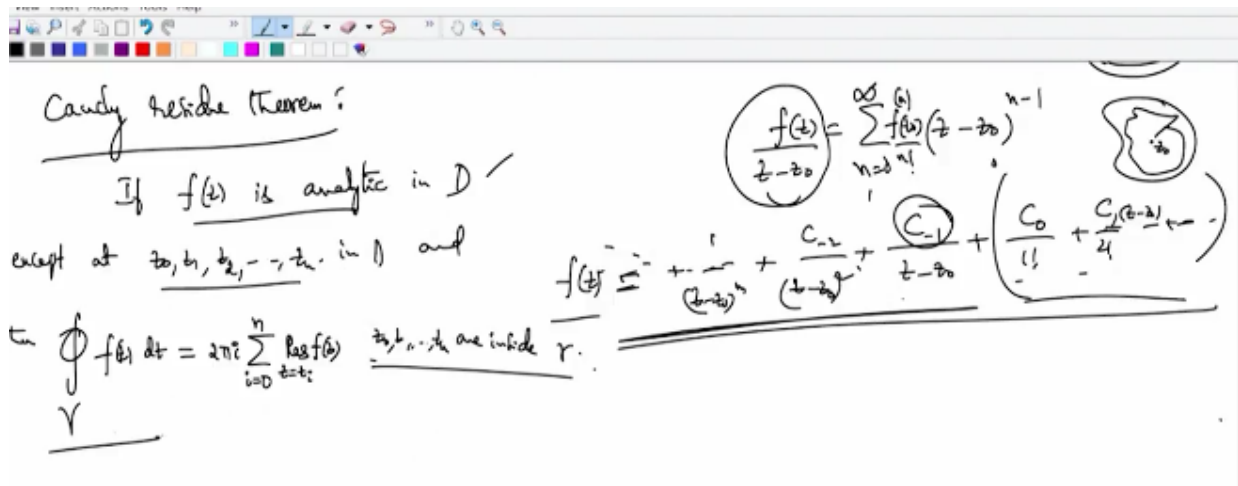 Caucy residue theorem :
If f(z) is analytic in D ✓
except at z₀, z₁, z₂, --, zₙ. in D and
∮_γ f(z) dz = 2πi ∑_{i=0}^{n} Res_{z=z_i} f(z) z₀, z₁, .., zₙ are inside γ.
f(z)/(z-z₀) = ∑_{n=0}^{∞} f^{(n)}(z₀)/n! (z-z₀)^{n-1}
z₀
f(z) = -- + - /(z-z₀)^n + C₋₂/(z-z₀)² + C₋₁/(z-z₀) + (C₀/1! + C₁(z-z₀) + -- )